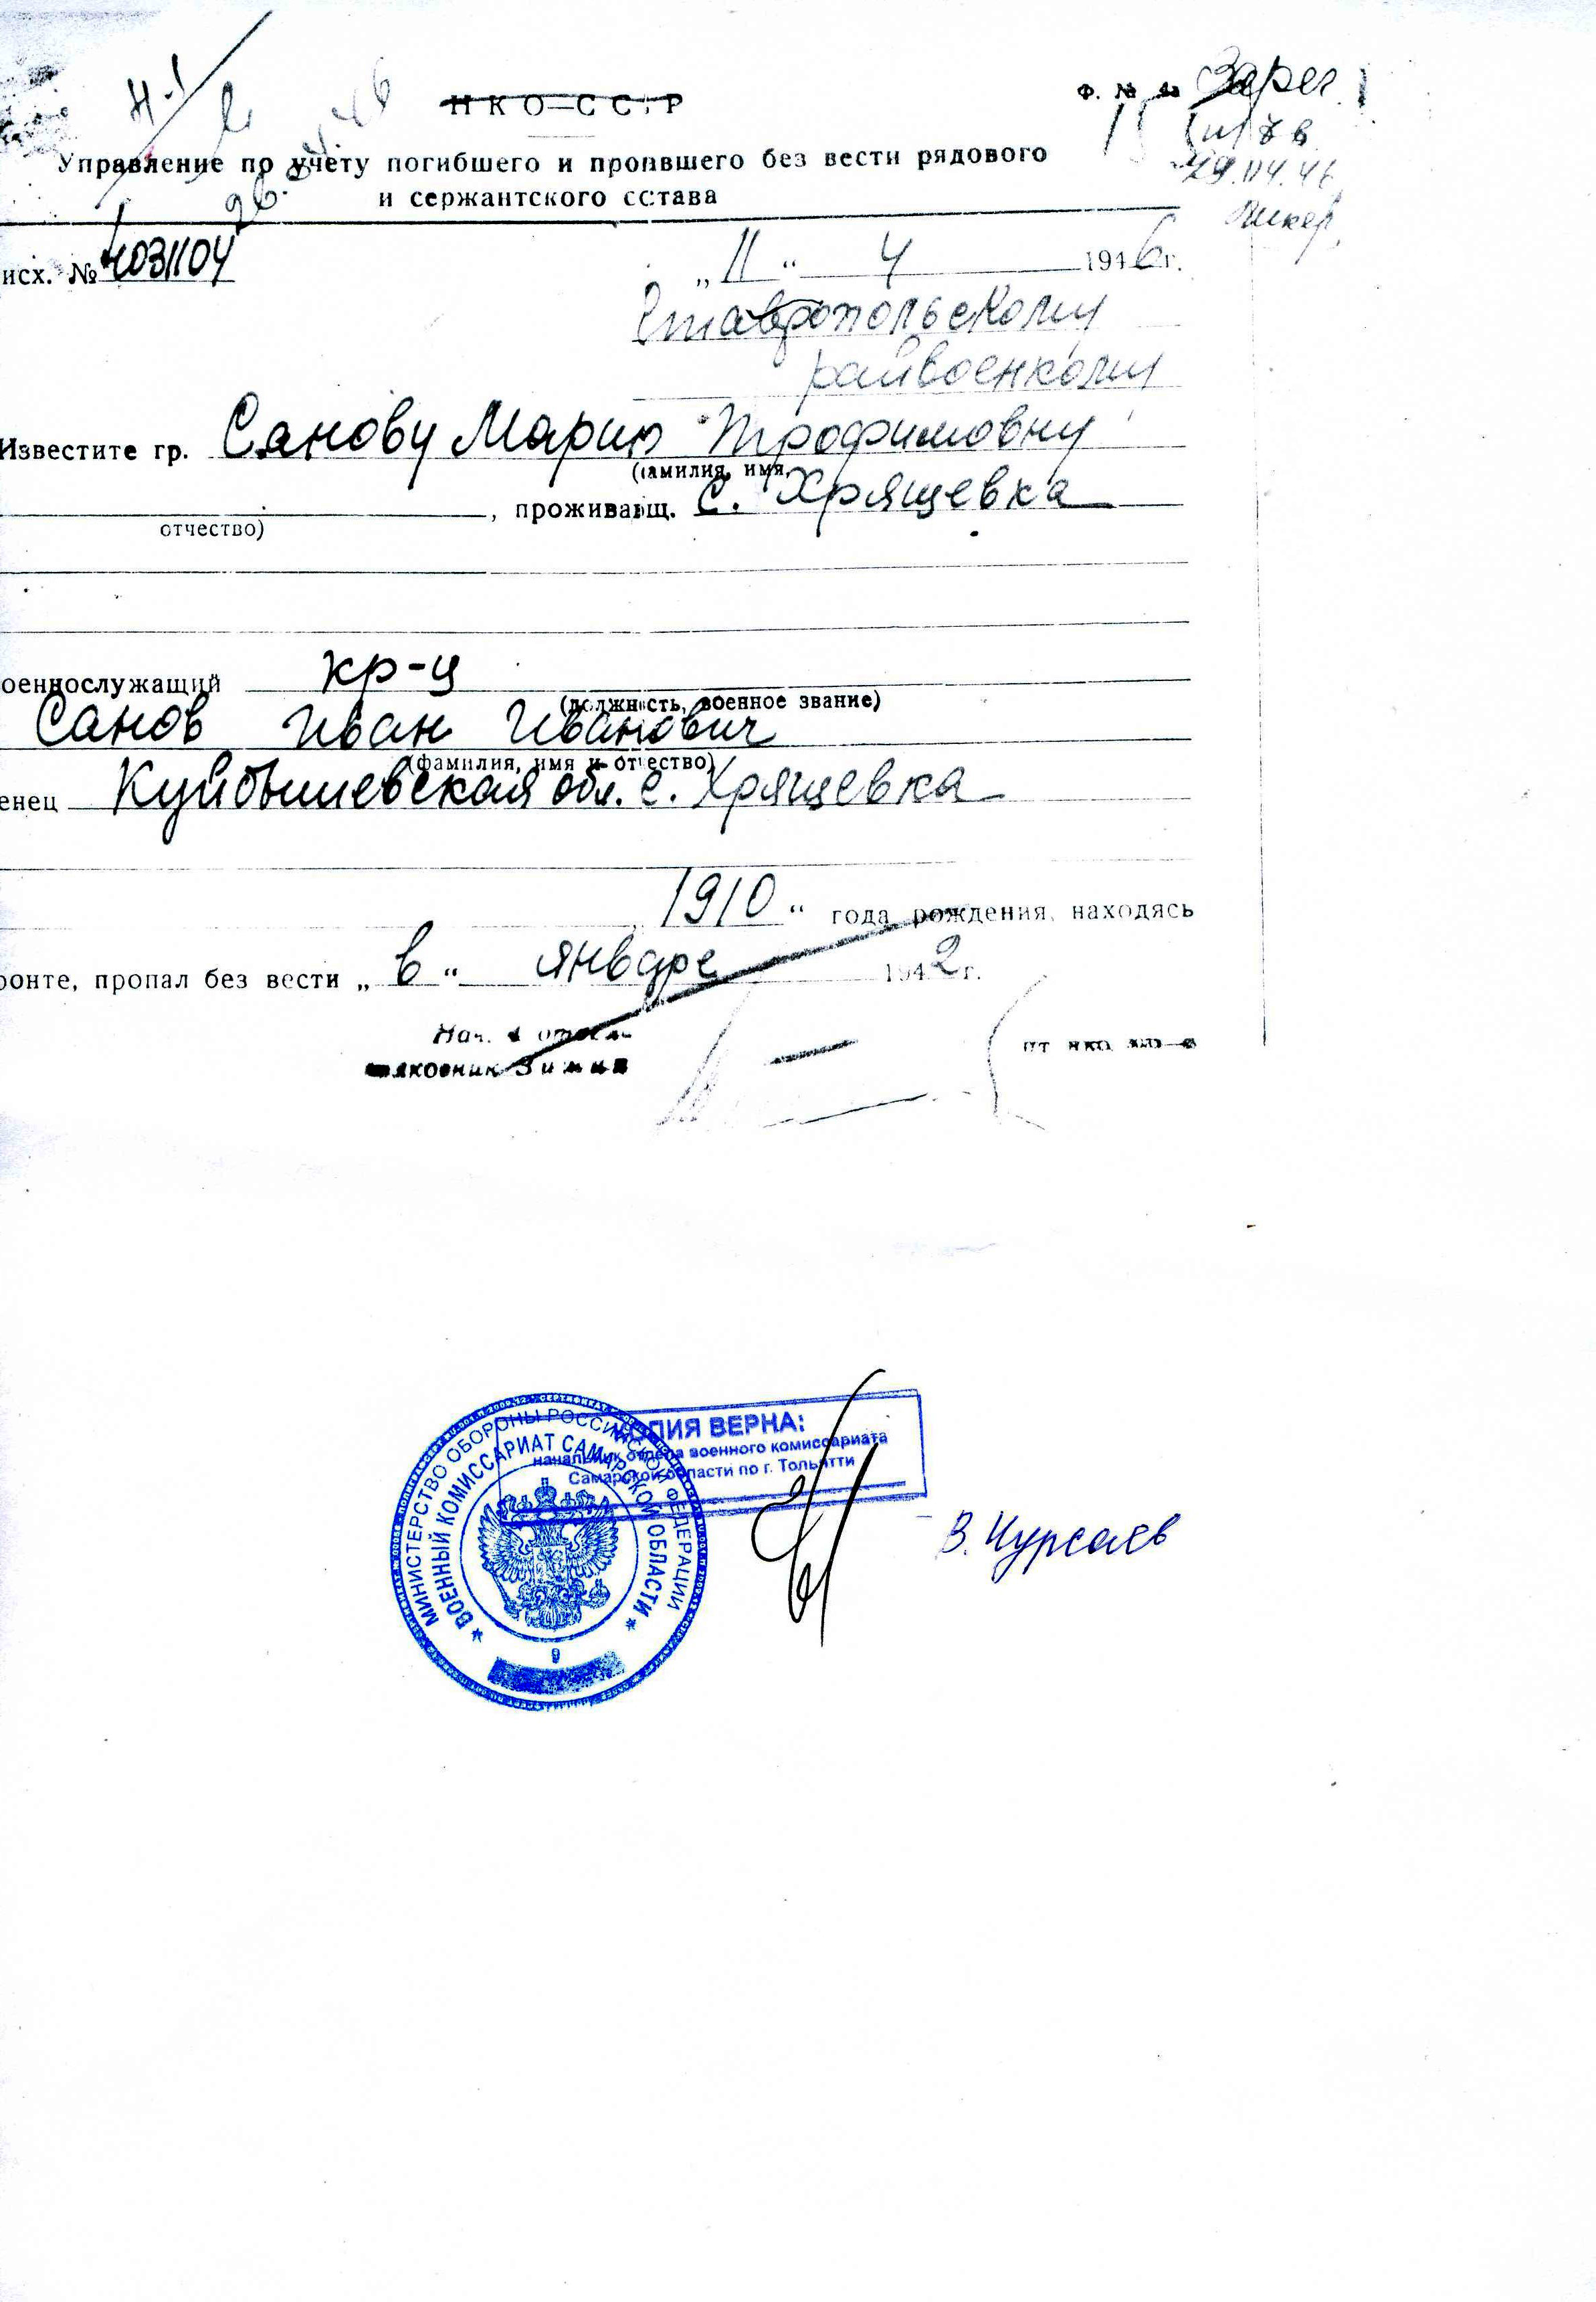 Н-1
НКО ССР
Ф. № Зарег.
Управление по учету погибшего и пропавшего без вести рядового
29.04.46
и сержантского состава
исх. № 4031104
„ 11 “ 4 1946 г.
Ставропольскому
райвоенкому
Известите гр. Санову Марию Трофимовну
(фамилия, имя,
, проживающ. с. Хрящевка
отчество)
оеннослужащий кр-ц
(должность, военное звание)
Санов Иван Иванович
(фамилия, имя и отчество)
енец Куйбышевская обл. с. Хрящевка
1910 “ года рождения, находясь
ронте, пропал без вести „ в “ январе 1942 г.
Нач. отдела
полковник Зимин
КОПИЯ ВЕРНА:
начальник отдела военного комиссариата
Самарской области по г. Тольятти
МИНИСТЕРСТВО ОБОРОНЫ РОССИЙСКОЙ ФЕДЕРАЦИИ
* ВОЕННЫЙ КОМИССАРИАТ САМАРСКОЙ ОБЛАСТИ *
9
В. Курсаев